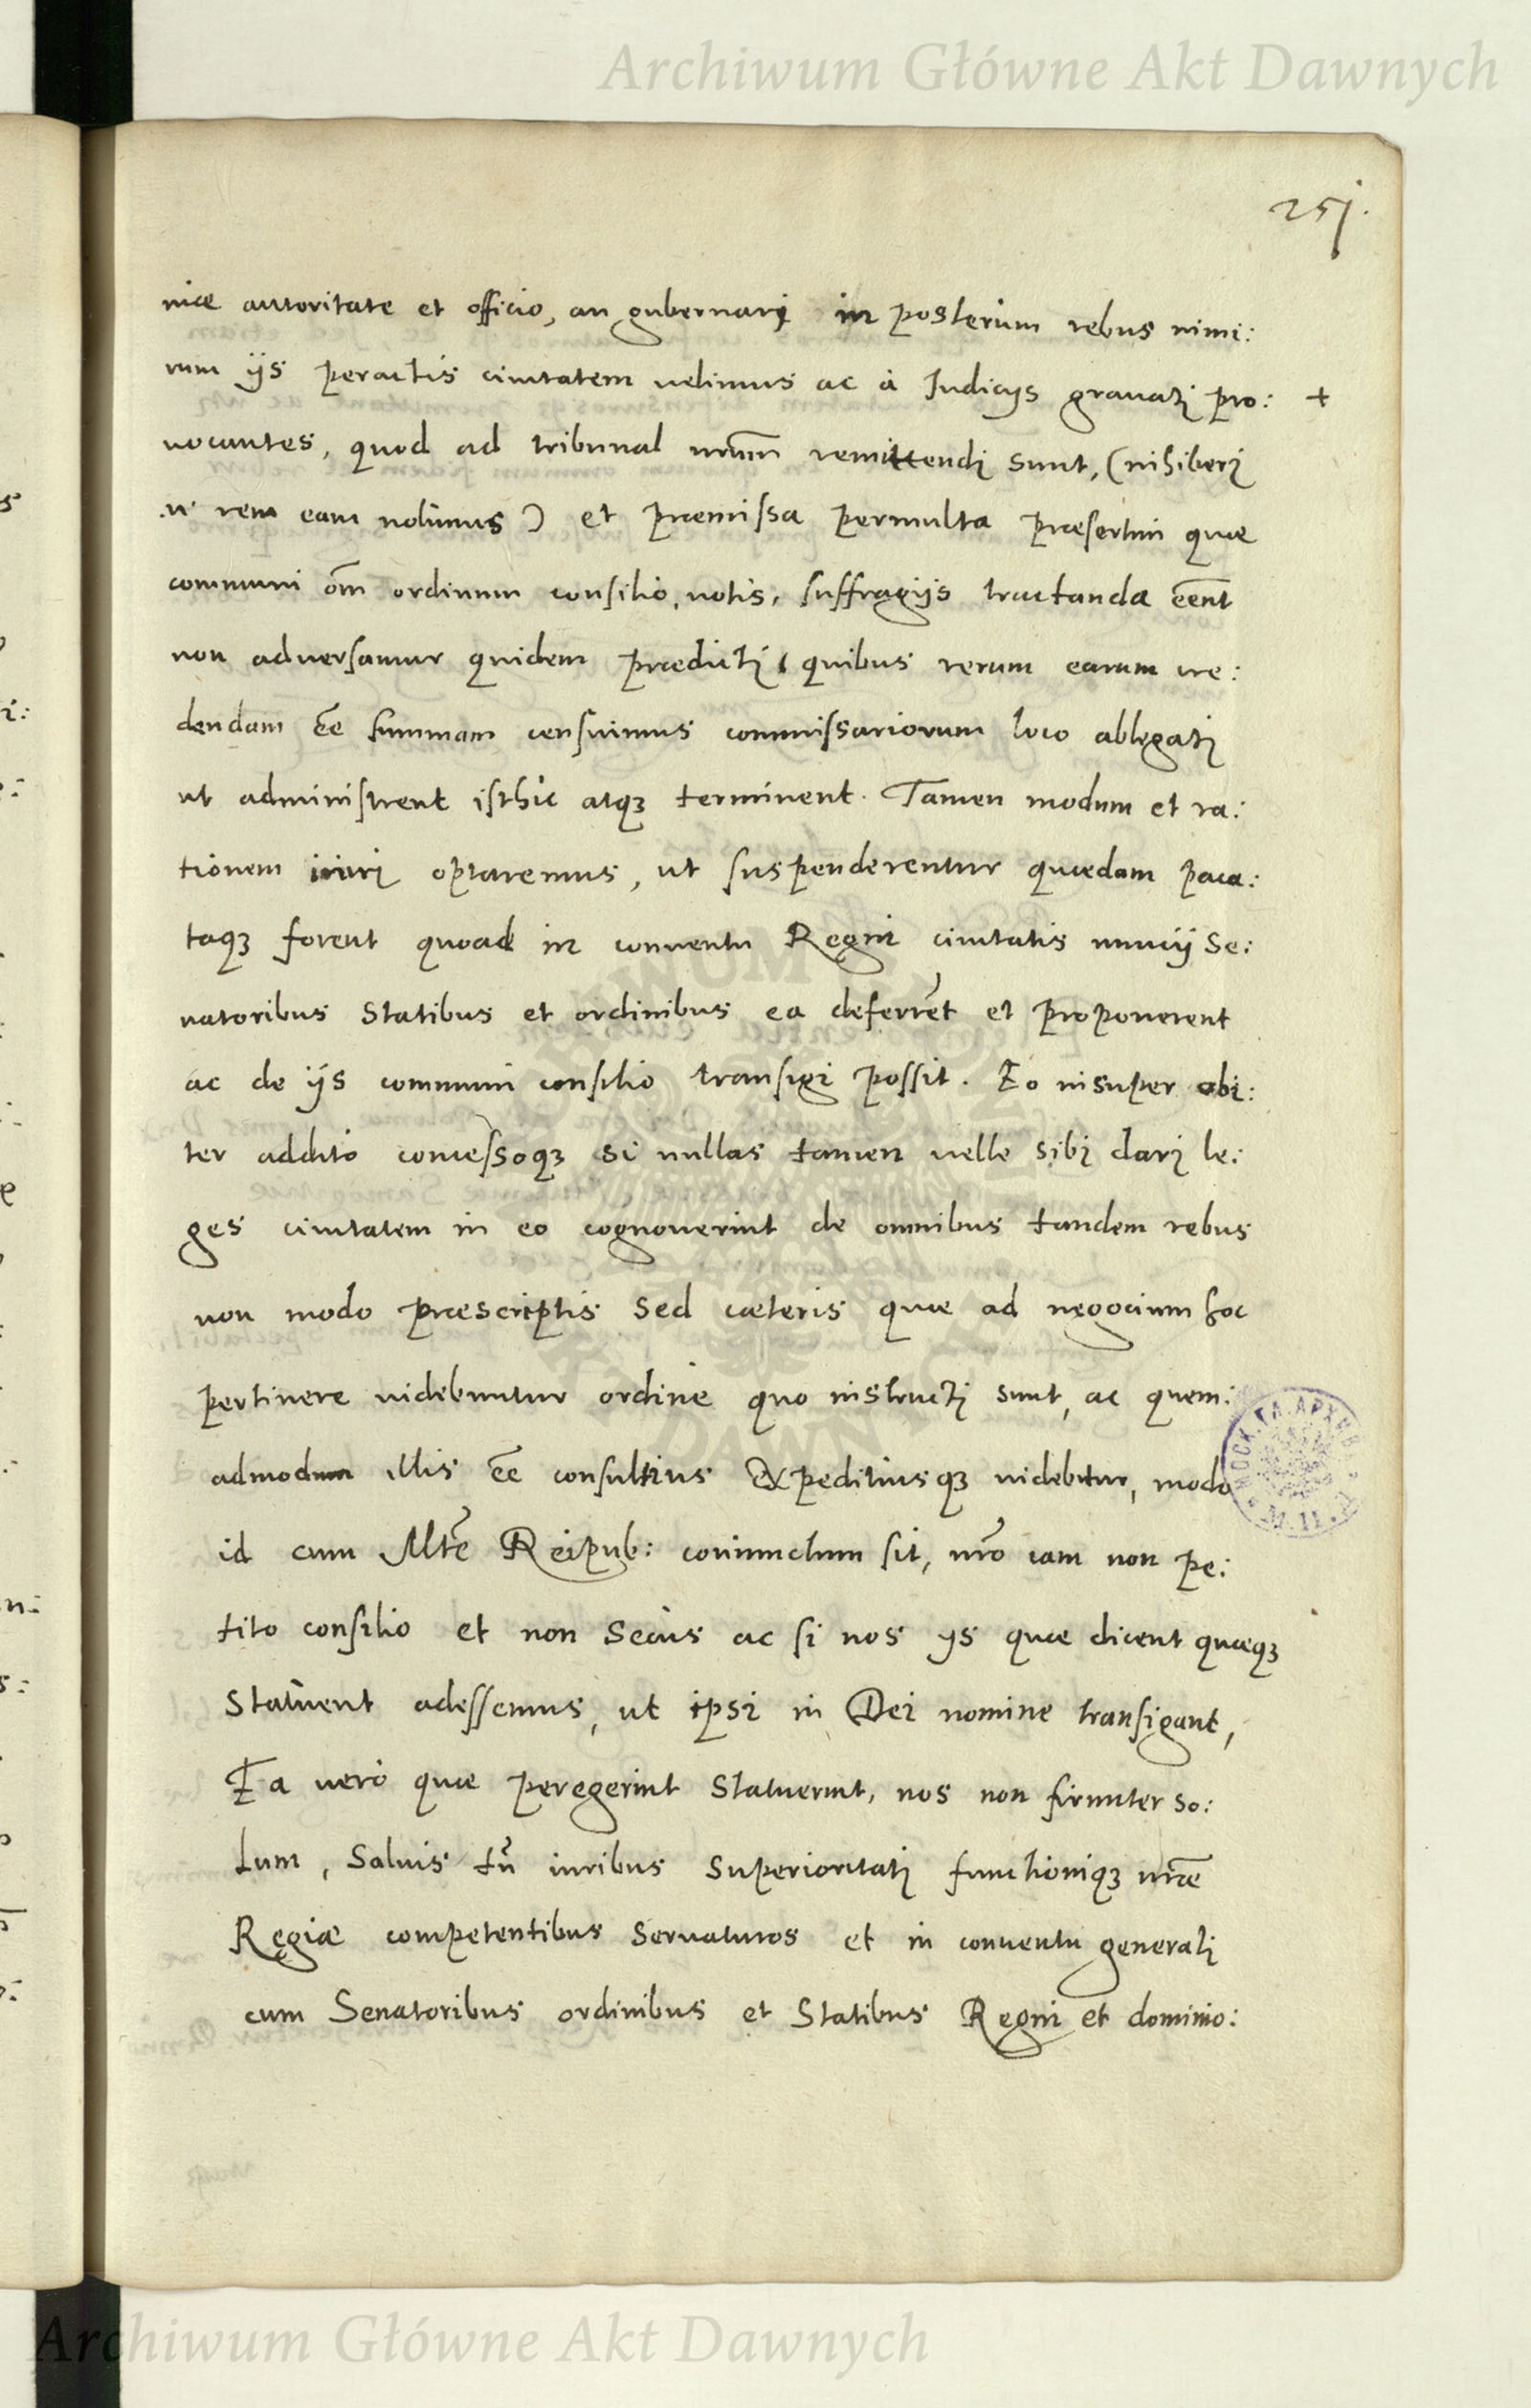 Archiwum Główne Akt Dawnych
251.
niæ autoritate et officio, an gubernari in posterum rebus nimi:
rum ijs peractis ciuitatem uelimus ac à Iudicijs grauati pro: +
uocantes, quod ad tribunal nrum remittendi sunt, (nisi liberi
rem eam nolimus) et præmissa permulta præsertim quæ
communi om ordinum consilio, uotis, suffragijs tractanda eent
non aduersamur quidem prædicti (quibus rerum earum cre:
dendam ee summam censuimus commissariorum loco ablegati
ut administrent isthic atq3 terminent. Tamen modum et ra:
tionem iniri optaremus, ut suspenderentur quædam paca:
taq3 forent quoad in conuentu Regni ciuitatis nuncij Se:
natoribus Statibus et ordinibus ea deferret et proponerent
ac de ijs communi consilio transigi possit. Eo insuper obi:
ter addito concessoq3 si nullas tamen uelle sibi dari le:
ges ciuitatem in eo cognouerint de omnibus tandem rebus
non modo præscriptis sed cæteris quæ ad negocium hoc
pertinere uidebuntur ordine quo instructi sunt, ac quem:
admodum illis ee consultius Expeditiusq3 uidebitur, modo
id cum Mte Reipub: coniunctum sit, nro iam non pe:
tito consilio et non secùs ac si nos ijs quæ dicent quæq3
statuent adessemus, ut ipsi in Dei nomine transigant,
Ea vero quæ peregerint statuerint, nos non firmiter so:
lum, saluis tn iuribus superioritati functioniq3 nræ
Regiæ competentibus seruaturos et in conuentu generali
cum Senatoribus ordinibus et Statibus Regni et dominio:
Archiwum Główne Akt Dawnych